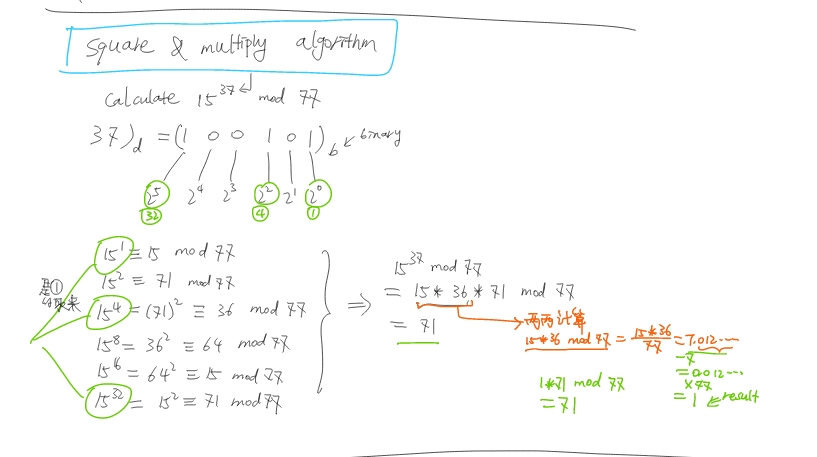 square & multiply algorithm
calculate 15^37 mod 77
37)_d = (1 0 0 1 0 1)_b ← binary
2^5 2^4 2^3 2^2 2^1 2^0
32 4 1
15^1 ≡ 15 mod 77
15^2 ≡ 71 mod 77
是①
的取来
15^4 = (71)^2 ≡ 36 mod 77
15^8 = 36^2 ≡ 64 mod 77
15^16 = 64^2 ≡ 15 mod 77
15^32 = 15^2 ≡ 71 mod 77
⇒
15^37 mod 77
= 15 * 36 * 71 mod 77
= 71
两两计算
15*36 mod 77 = 15*36/77 = 7.012……
-7
= 0.012……
×77
= 1 ← result
1*71 mod 77
= 71